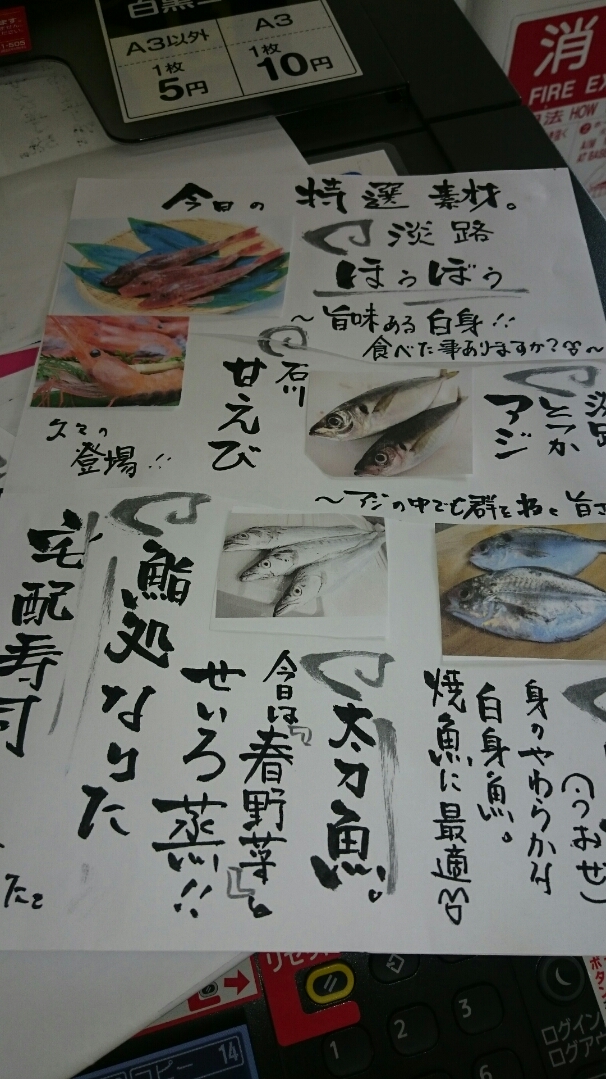 A3以外
A3
1枚
5円
1枚
10円
消
FIRE EX
今日の 特選 素材。
淡路
ほうぼう
~旨味ある白身!!
食べた事ありますか?
石川
甘えび
久々の
登場!!
淡路
アジ
~アジの中でも群を抜く旨
太刀魚。
今日は「春野菜」
せいろ蒸!!
身のやわらかな
白身魚。
焼魚に最適
(うおせ)
鮨処なりた
宅配寿司
リセット
コピー
14
1
2
3
6
ログイン
ログアウ